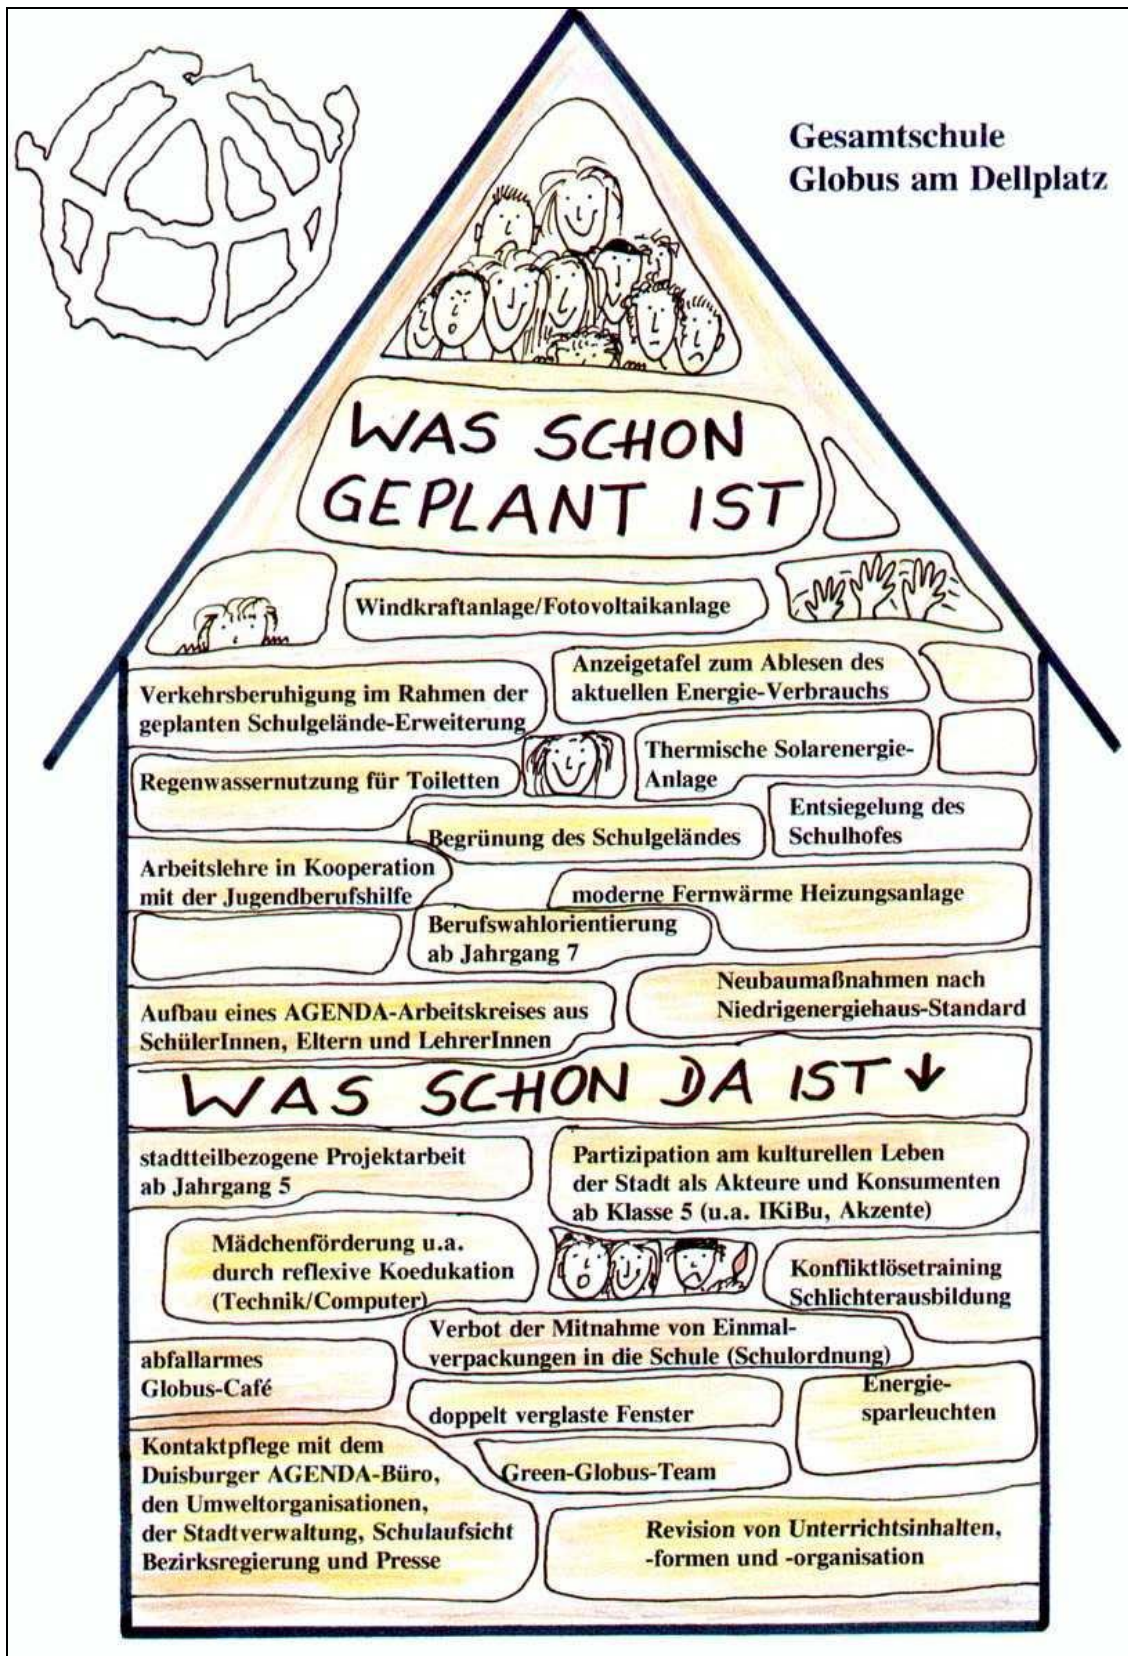 Gesamtschule
Globus am Dellplatz
WAS SCHON
GEPLANT IST
Windkraftanlage/Fotovoltaikanlage
Verkehrsberuhigung im Rahmen der
geplanten Schulgelände-Erweiterung
Anzeigetafel zum Ablesen des
aktuellen Energie-Verbrauchs
Regenwassernutzung für Toiletten
Thermische Solarenergie-
Anlage
Begrünung des Schulgeländes
Entsiegelung des
Schulhofes
Arbeitslehre in Kooperation
mit der Jugendberufshilfe
moderne Fernwärme Heizungsanlage
Berufswahlorientierung
ab Jahrgang 7
Aufbau eines AGENDA-Arbeitskreises aus
SchülerInnen, Eltern und LehrerInnen
Neubaumaßnahmen nach
Niedrigenergiehaus-Standard
WAS SCHON DA IST ↓
stadtteilbezogene Projektarbeit
ab Jahrgang 5
Partizipation am kulturellen Leben
der Stadt als Akteure und Konsumenten
ab Klasse 5 (u.a. IKiBu, Akzente)
Mädchenförderung u.a.
durch reflexive Koedukation
(Technik/Computer)
Konfliktlösetraining
Schlichterausbildung
Verbot der Mitnahme von Einmal-
verpackungen in die Schule (Schulordnung)
abfallarmes
Globus-Café
doppelt verglaste Fenster
Energie-
sparleuchten
Kontaktpflege mit dem
Duisburger AGENDA-Büro,
den Umweltorganisationen,
der Stadtverwaltung, Schulaufsicht
Bezirksregierung und Presse
Green-Globus-Team
Revision von Unterrichtsinhalten,
-formen und -organisation